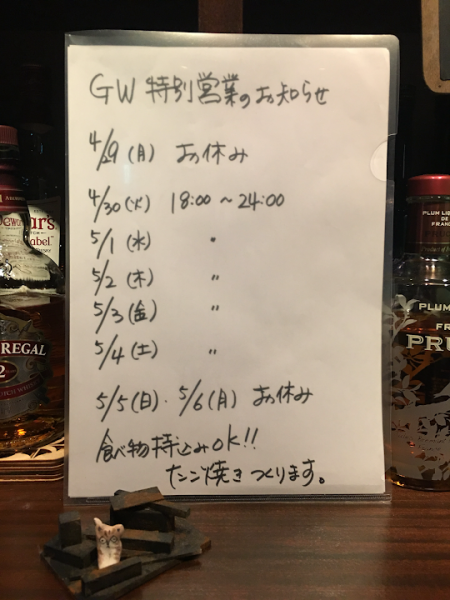 GW 特別営業のお知らせ
4/29(月) お休み
4/30(火) 18:00 ~ 24:00
5/1(水) 〃
5/2(木) 〃
5/3(金) 〃
5/4(土) 〃
5/5(日)・5/6(月) お休み
食べ物持込みOK!!
たこ焼きつくります。
Dewar's
Label
REGAL
PLUM LIQU
DE
FRAN
PLUM
FR
PRU